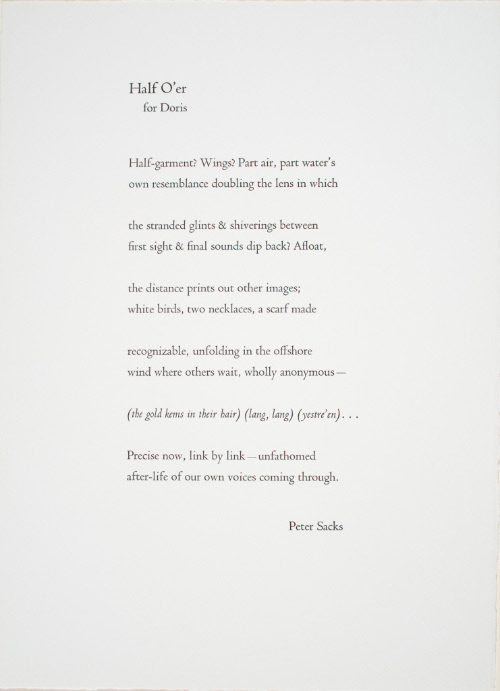 Half O'er
for Doris
Half-garment? Wings? Part air, part water's
own resemblance doubling the lens in which
the stranded glints & shiverings between
first sight & final sounds dip back? Afloat,
the distance prints out other images;
white birds, two necklaces, a scarf made
recognizable, unfolding in the offshore
wind where others wait, wholly anonymous—
(the gold kems in their hair) (lang, lang) (yestre'en) . . .
Precise now, link by link—unfathomed
after-life of our own voices coming through.
Peter Sacks